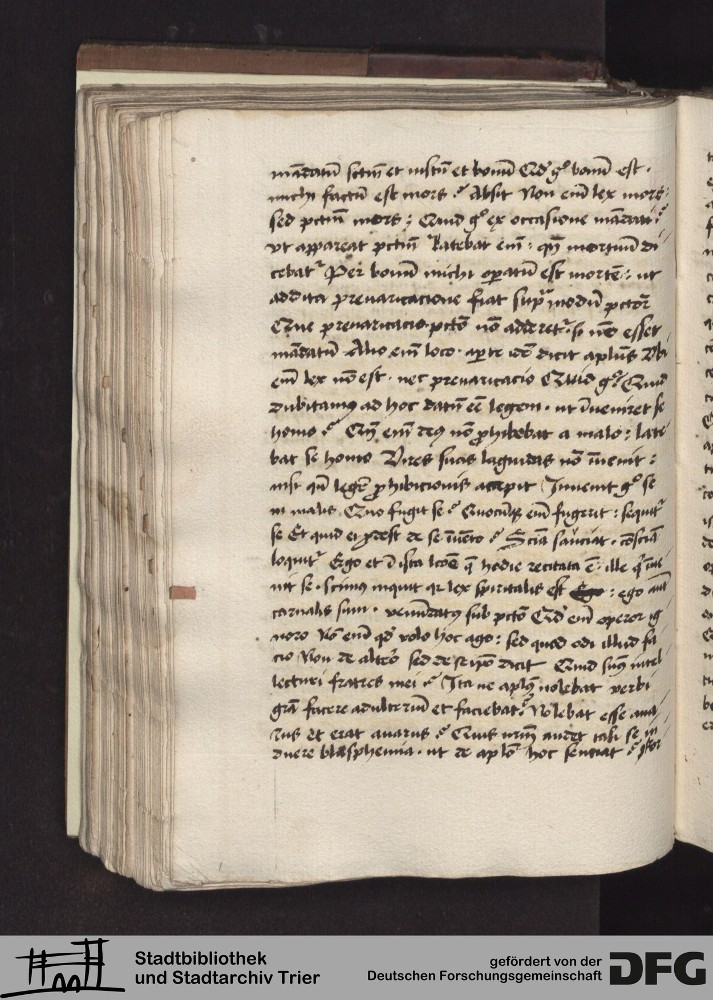 mādatū sctm̄ et iustū et bonū Qd' gͦ bonū est ·
michi factū est mors ? Absit Non em̄ lex mors
sed pctm̄ mors ; Quid gͦ ex occasione mādati
vt appareat pctm̄ Latebat em̄ : qn̄ mortuū di
cebat᷑ Per bonū michi operatū est mortē : ut
addita preuaricatione fiat supͣ modū pctōr
Que preuaricatio pctō nō adderet᷑ · si nō esset
mādatū Alio em̄ loco · aperte idē dicit aplūs Vbi
em̄ lex nō est · nec preuaricatio Quid gͦ ? Quid
dubitamus ad hoc datū eē legem · ut īueniret se
homo ? Qn̄ em̄ deus nō phibebat a malo : late
bat se homo Vires suas laguidas nō īuenit :
nisi qn̄ legē phibicionis accepit Inuenit gͦ se
in malis Quo fugit se ? Quocūqʒ em̄ fugerit : sequit᷑
se Et quid ei prodest de se īuēto ? Sciā sauciat · cōsciā
loquit᷑ Ergo et ī ista lcōe q̄ hodie recitata ē · ille q ī
nit se · Scimus inquit qr lex spiritalis est : ego aut̄
carnalis sum · venūdatus sub pctō Qd' em̄ operor ig
noro Nō em̄ qd' volo hoc ago : sed quod odi illud fa
cio Non de altero sed de seipō dicit Quid sum᷒ intel
lecturi fratres mei ? Ita ne aplus nolebat verbi
grā facere adulteriū et faciebat ? Nolebat esse aua
rus et erat auarus ? Quis nrm̄ audet tali se in
duere blasphemia · ut de aplo hoc sentiat ?
Stadtbibliothek
und Stadtarchiv Trier
gefördert von der
Deutschen Forschungsgemeinschaft
DFG